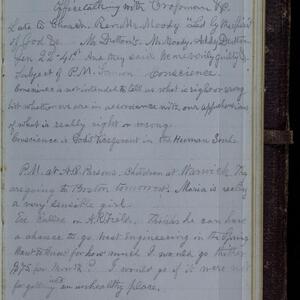 Office talking with Chapman &c.
Late to Church. Rev Mr Moody
of God &c. Mr Dutton's. Mr Moody.
Gen 42d 21st And they said We are verily guilty &c
Subject of P.M. Sermon Conscience.
Conscience is not intended to tell us what is right or wrong
but whether we are in accordance with our apprehensions
of what is really right or wrong.
Conscience is God's Vicegerent in the Human Soul.
P.M. at A.D. Parsons. Children at Warwick They
are going to Boston tomorrow. Maria is really
a very sensible girl.
See Eddie or A. Fields. thinks he can have
a chance to go west Engineering in the Spring
Want to know for how much I would go thither
per Month? I would go if it were not
for getting into an unhealthy place.